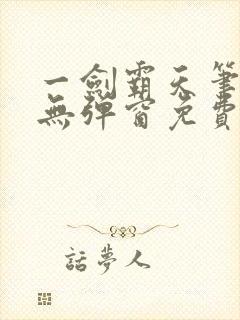 一劍霸天筆
無彈窗免費
話夢人